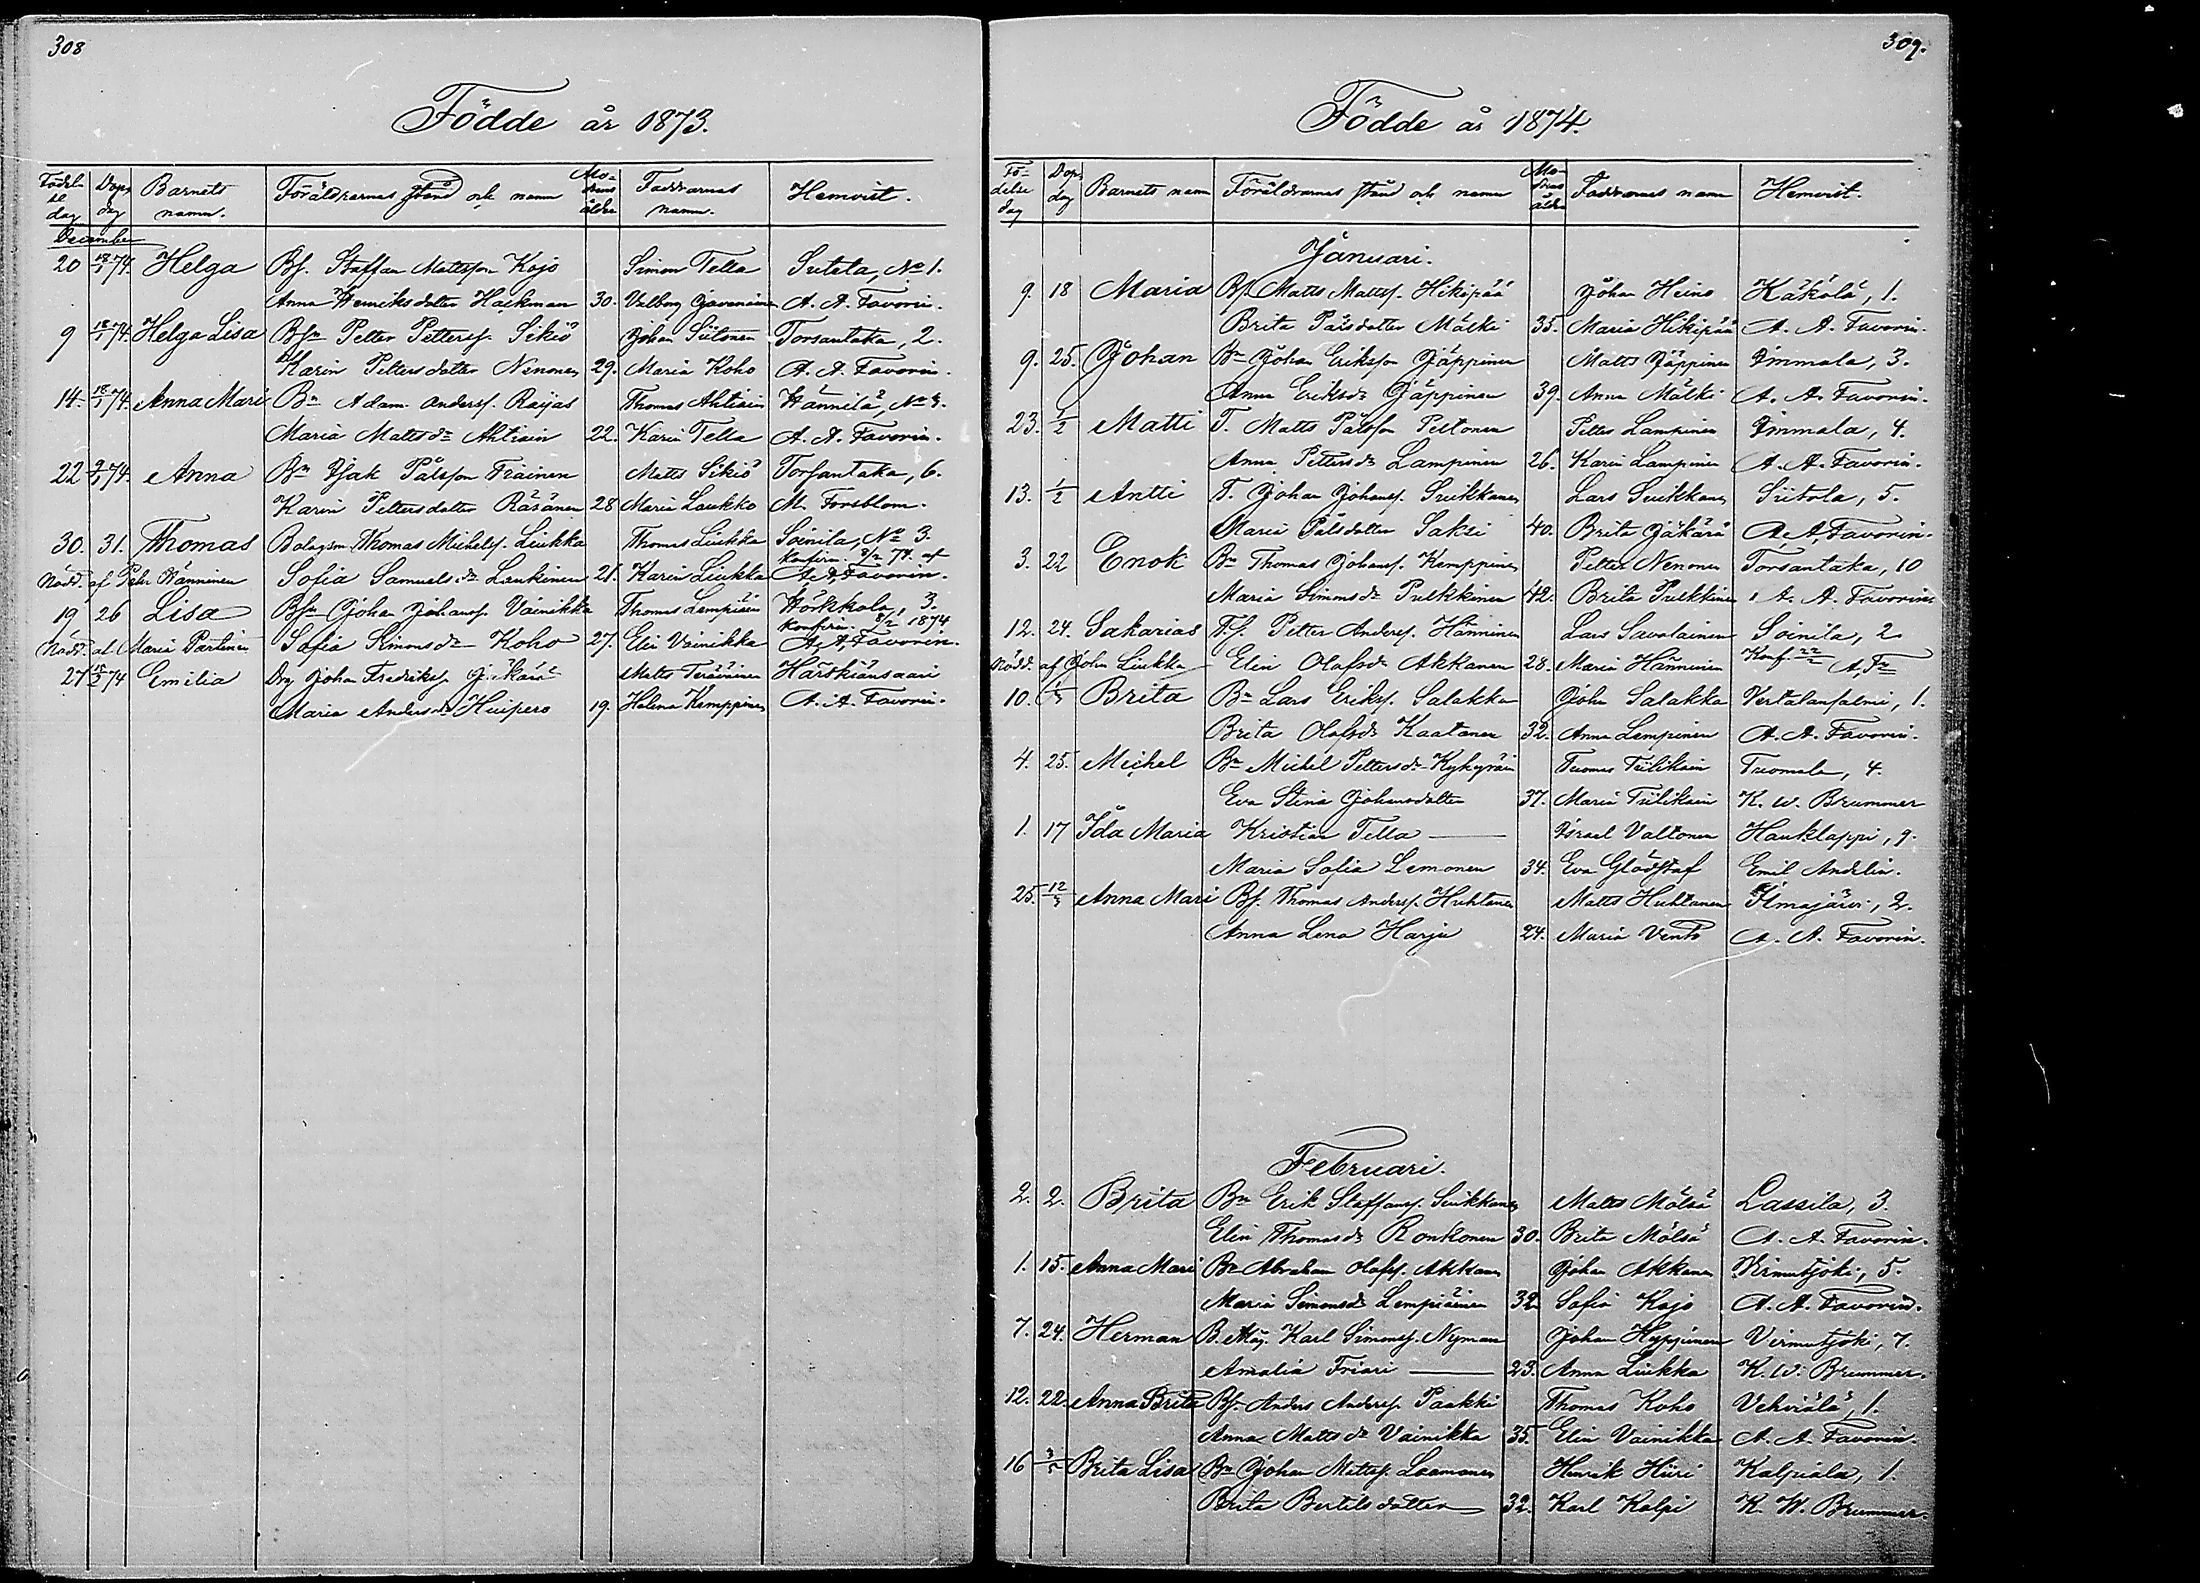 308
Födde år 1873.
Födelse dag Dop dag Barnets namn. Föräldrarnas stånd och namn Modrens ålder Faddrarnas namn. Hemvist.
December
20 18/1 74. Helga Bf. Staffan Mattsson Kojo Simon Tella Sutela, No 1.
Anna Henriksdotter Hackman 30. Valborg A. A. Favorin.
9 18/1 74. Helga Lisa Bsn Petter Petterss. Sikiö Johan Siitonen Torsantaka, 2.
Karin Pettersdotter Nenonen 29. Maria Koho A. A. Favorin.
14. 18/1 74. Anna Mari Bn Adam Anderss. Raijas Thomas Ahtiain Hännilä, No
Maria Mattsdr Ahtiain 22. Karin Tella A. A. Favorin.
22 74. Anna Bn Isak Pålsson Träinen Matts Sikiö Torsantaka, 6.
Karin Pettersdotter Räsänen 28 Maria Laukko M. Forsblom.
30. 31. Thomas Bolagsm. Thomas Michelss. Liukka Thomas Liukka Soinila, No 3.
Konfirm. 8/2 74. af
Nödd. af Petr Hänninen Sofia Samuelsdr Laukinen 21. Karin Liukka A. A. Favorin.
19 26 Lisa Bsn Johan Johanss. Vainikka Thomas Lempiäin Hörkkola, 3.
Konfirm. 8/2 1874
Nödd. af Maria Partinen Sofia Simonsdr Koho 27. Elin Vainikka A. A. Favorin.
27 15/2 74 Emilia Drg Johan Fredrikss. Jääkäin Matts Teräväinen Härskiänsaari
Maria Andersdr Huipero 19. Helena Kemppinen A. A. Favorin.
309.
Födde år 1874.
Födelse dag Dop dag Barnets namn Föräldrarnas stånd och namn Modrens ålder Faddrarnas namn Hemvist.
Januari.
9. 18 Maria Bf. Matts Mattss. Hikipää Johan Heino Käkölä, 1.
Brita Pålsdotter Mälki 35. Maria Hikipää A. A. Favorin.
9. 25. Johan Bn Johan Eriksson Jäppinen Matts Jäppinen Immala, 3.
Anna Eriksdr Jäppinen 39. Anna Mälki A. A. Favorin.
23. 1/2 Matti T. Matts Pålsson Peltonen Petter Lampinen Immala, 4.
Anna Pettersdr Lampinen 26. Karin Lampinen A. A. Favorin.
13. 1/2 Antti T. Johan Johanss. Suikkanen Lars Suikkanen Siitola, 5.
Maria Pålsdotter Saksi 40. Brita Jäkärä A. A. Favorin.
3. 22 Enok Bn Thomas Johanss. Kemppinen Petter Nenonen Torsantaka, 10
Maria Simonsdr Pulkkinen 42. Brita Pulkkinen A. A. Favorin
12. 24. Sakarias T.f. Petter Anderss. Hänninen Lars Savolainen Soinila, 2
Nödd. af John Liukka Elin Olafsdr Akkanen 28. Maria Hänninen Konf. 22/2 A. Fn
10. 1/3 Brita Bn Lars Erikss. Salakka John Salakka Vertalansalmi, 1.
Brita Olafsdr Kaatonen 32. Anna Lempinen A. A. Favorin.
4. 25. Michel Bn Michel Pettersdr Kykyräin Tuomas Tiilikain Tuomala, 4.
Eva Stina Johansdotter 37. Maria Tiilikain K. W. Brummer
1. 17 Ida Maria Kristian Tella Israel Valtonen Hauklappi, 9.
Maria Sofia Lemonen 34. Eva Glödstaf Emil Andelin.
25. 12/3 Anna Mari Bf. Thomas Anderss. Huhtanen Matts Huhtanen Ilmajärvi, 2.
Anna Lena Harju 24. Maria Vento A. A. Favorin.
Februari.
2. 2. Brita Bn Erik Staffanss. Suikkanen Matts Mölsä Lassila, 3.
Elin Thomasdr Ronkonen 30. Brita Mölsä A. A. Favorin.
1. 15. Anna Mari Bn Abraham Olafss. Akkanen Johan Akkanen Virmutjoki, 5.
Maria Simonsdr Lempiäinen 32. Sofia Kojo A. A. Favorin.
7. 24. Herman B. Måg. Karl Simonss. Nyman Johan Hyppönen Virmutjoki, 7.
Amalia Friari 23. Anna Liukka K. W. Brummer.
12. 22. Anna Brita Bf. Anders Anderss. Paakki Thomas Koho Vehviälä, 1.
Anna Mattsdr Vainikka 35. Elin Vainikka A. A. Favorin.
16 3/5 Brita Lisa Bn Johan Mattss. Laamanen Henrik Hiiri Kalpiala, 1.
Brita Bertilsdotter 32. Karl Kalpi K. W. Brummer.